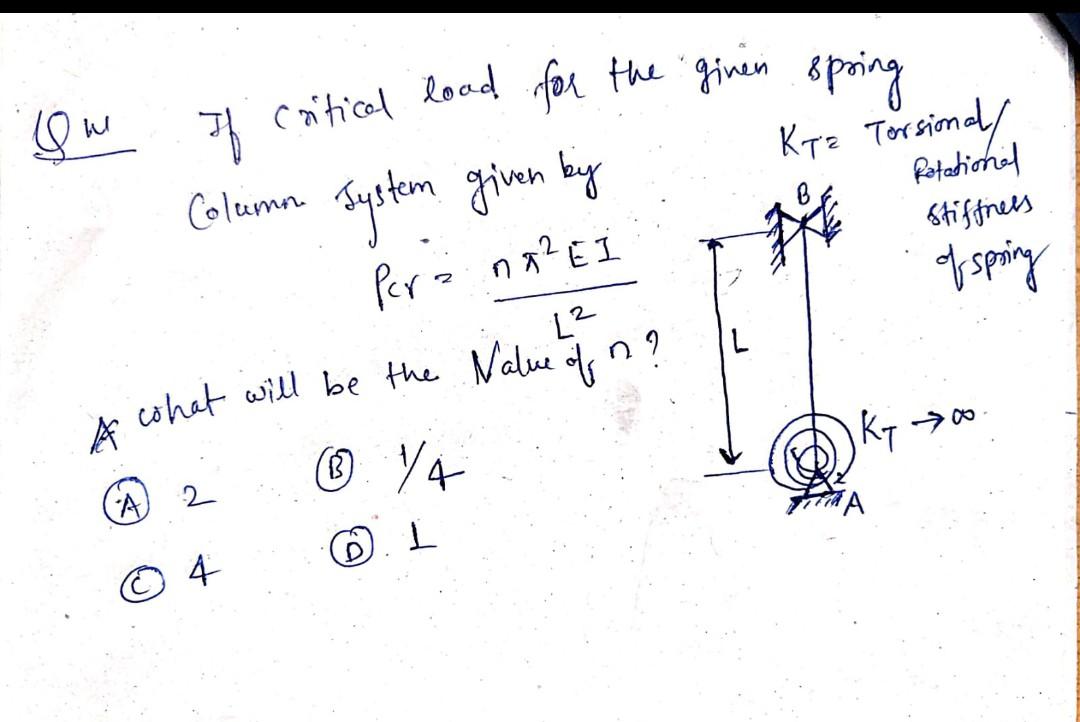 Qw If Critical load for the given spring
Column System given by
Pcr = nπ²EI
L²
what will be the Value of n?
(A) 2 (B) 1/4
(C) 4 (D) 1
KT = Torsional/
Rotational
stiffness
of spring
B
L
KT → ∞
A